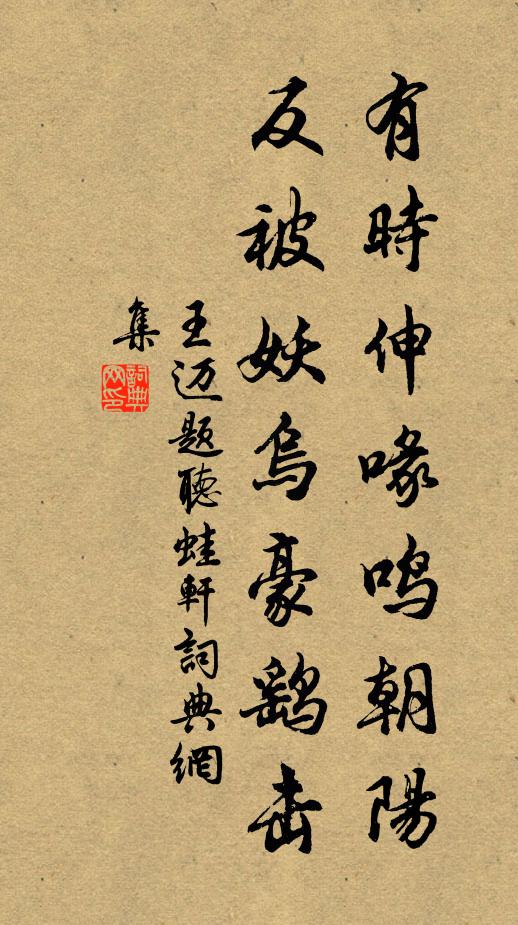 有時伸喙鳴朝陽
反被妖烏豪鷂击
王迈題聽蛙軒詞典網
集
詞典网印